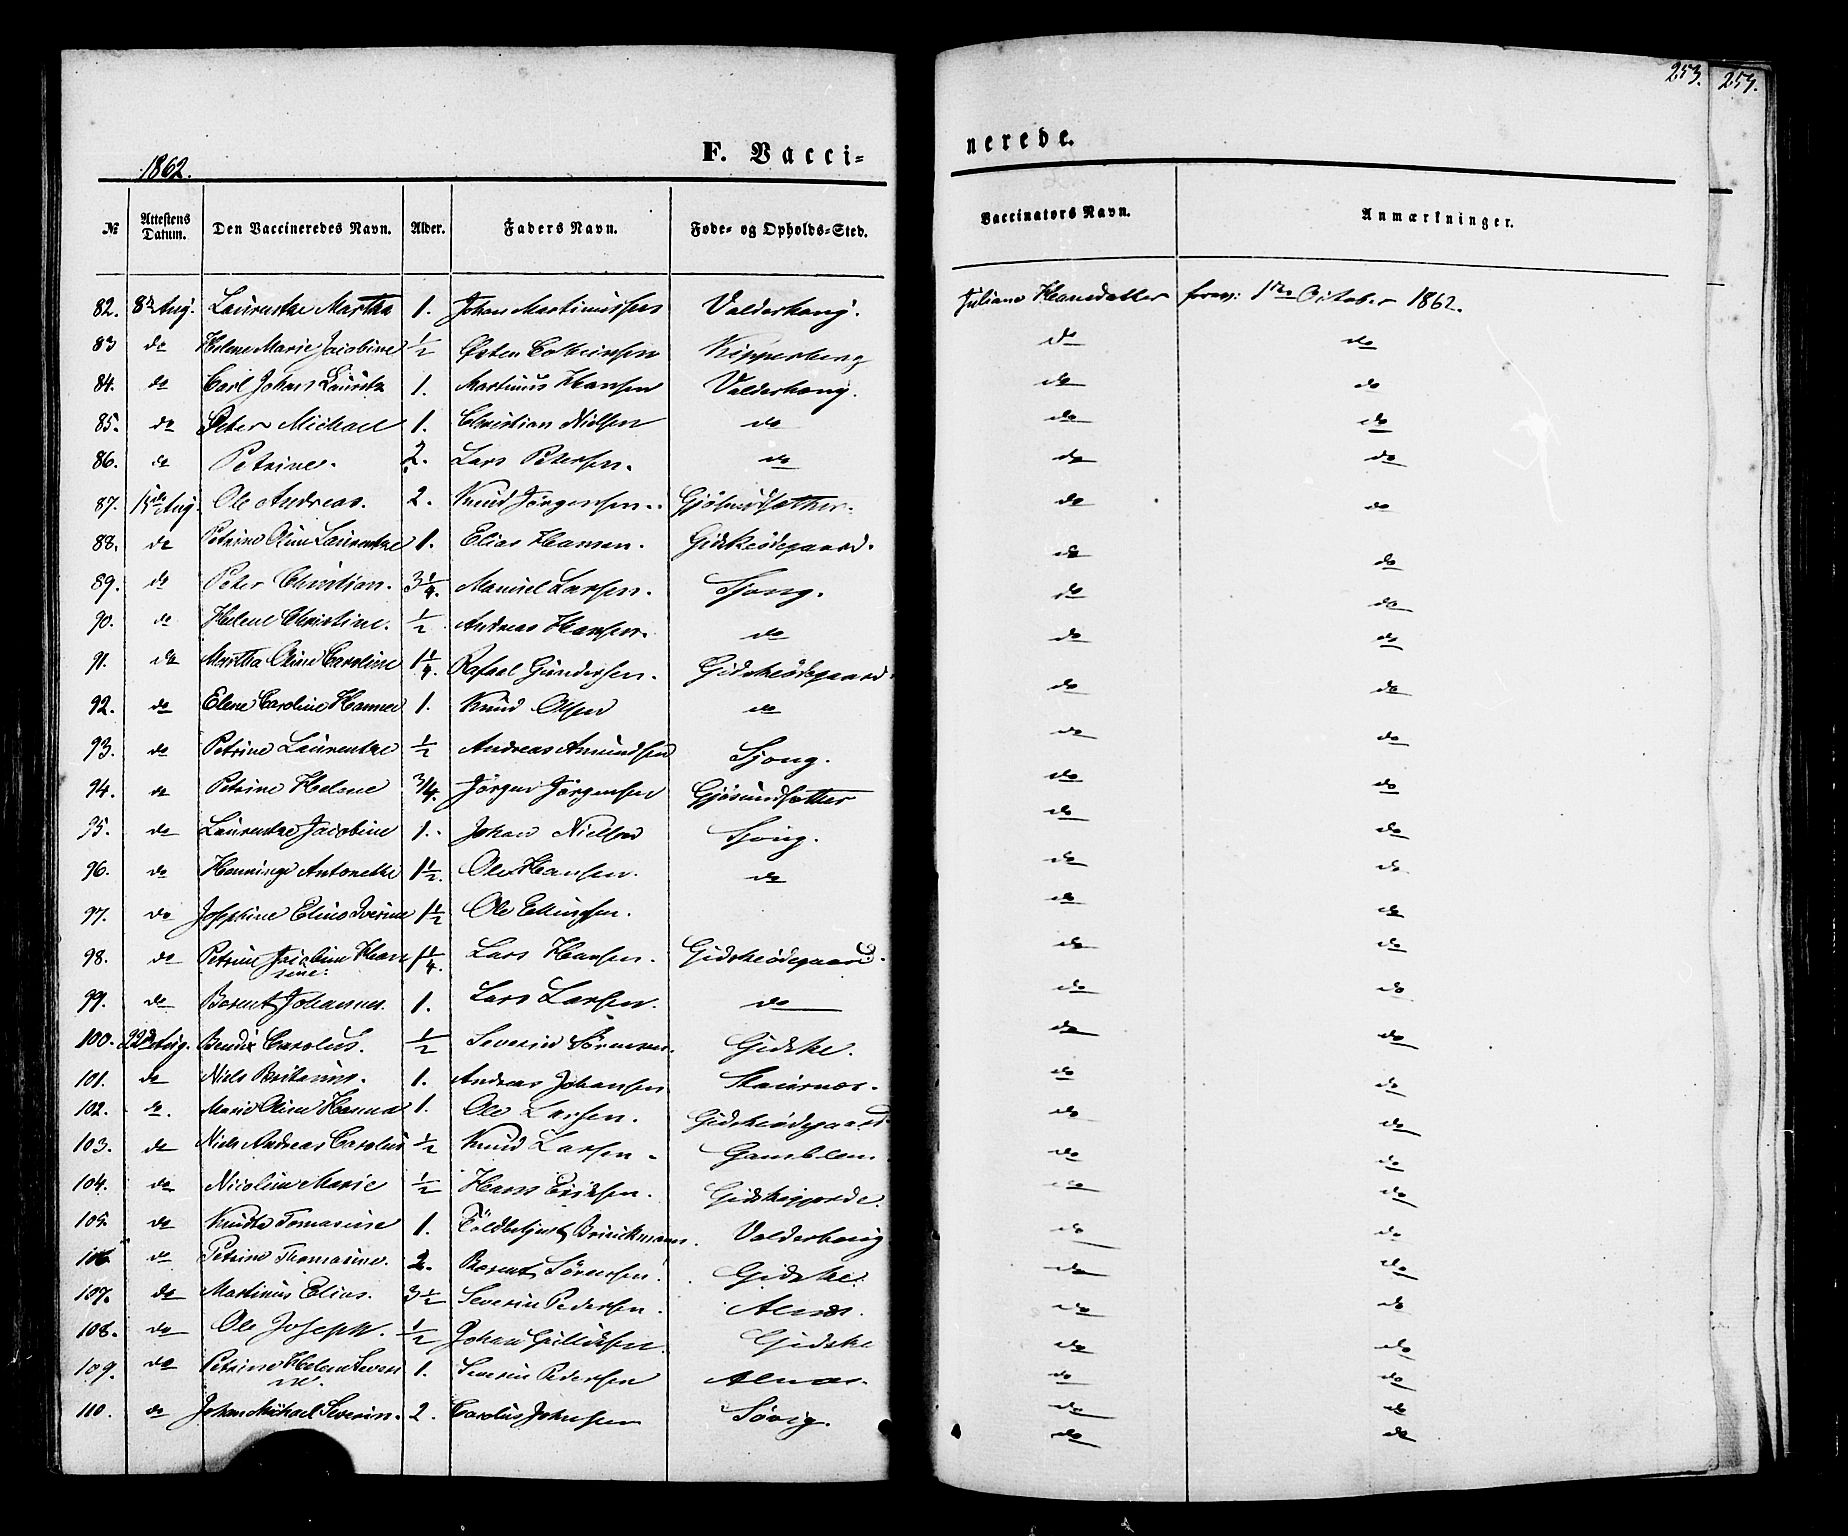 253. 257.
1862. F. Vacci= nerede.
№ Attestens Datum. Den Vaccineredes Navn. Alder. Faders Navn. Føde- og Opholds-Sted. Vaccinators Navn. Anmærkninger.
82. 8de Aug. Laurentze Martha 1. Johan Martinussen Valderhoug. Juliane Hansdatter 1ste October 1862.
83 do Helene Marie Jacobine ½ Østen Kipperberg do do
84. do Carl Johan Lauritz 1. Martinus Hansen Valderhoug. do do
85. do Peter Michael 1. Christian Nielsen do do do
86. do Petrine. 2. Lars Petersen. do do do
87. 15de Aug. Ole Andreas. 2. Knud Jørgensen. Gjøsundsæther. do do
88. do Petrine Oline Laurentze 1. Elias Hansen. Gidskeødegaard. do do
89. do Peter Christian. 3¼. Manuel Larsen. Sjong. do do
90. do Helene Christine. ½ Andreas Hansen. do do do
91. do Martha Oline Caroline 1¼. Rafael Gundersen. Gidskeødegaard do do
92. do Elene Caroline Hanna 1. Knud Olsen do do do
93. do Petrine Laurentze ½ Andreas Amundsen Sjong. do do
94. do Petrine Helene ¾. Jörgen Jörgensen Gjøsundsæther do do
95. do Laurentze Jacobine 1. Johan Nielsen Sjong. do do
96. do Henninge Antonette 1½. Ole Hansen. do do do
97. do Josephine Eline Iverine 1½ Ole Ellingsen. do do
98. do Petrine Jacobine Han 1¼. Lars Hansen. Gidskeødegaard. do do
sine.
99. do Berent Johannes. 1. Lars Larsen. do do do
100. 22de Aug. Bendix Carolus. ½ Severin Sörensen. Gidske. do do
101. do Niels 1. Andreas Johansen Skaurnæs. do do
102. do. Marie Oline Hanna 1. Ole Larsen. Gidskeødegaard. do do
103. do Niels Andreas Carolus ½ Knud Larsen. Gamblem. do do
104. do Nicoline Marie ½ Hans Eriksen. Gidskegjerde. do do
105. do Knudta Tomasine 1. Brinckmann. Valderhoug do do
106 do Petrine Thomasine. 2. Berent Sörensen. Gidske. do do
107. do Martinus Elias. 3½ Severin Pedersen. Alnæs. do do
108. do Ole Joseph. ½ Johan Gidske do do
109. do Petrine Helene Severi 1. Severin Pedersen Alnæs. do do
ne.
110. do Johan Michael Severin. 2. Carolus Johnsen Søvig. do do
do do